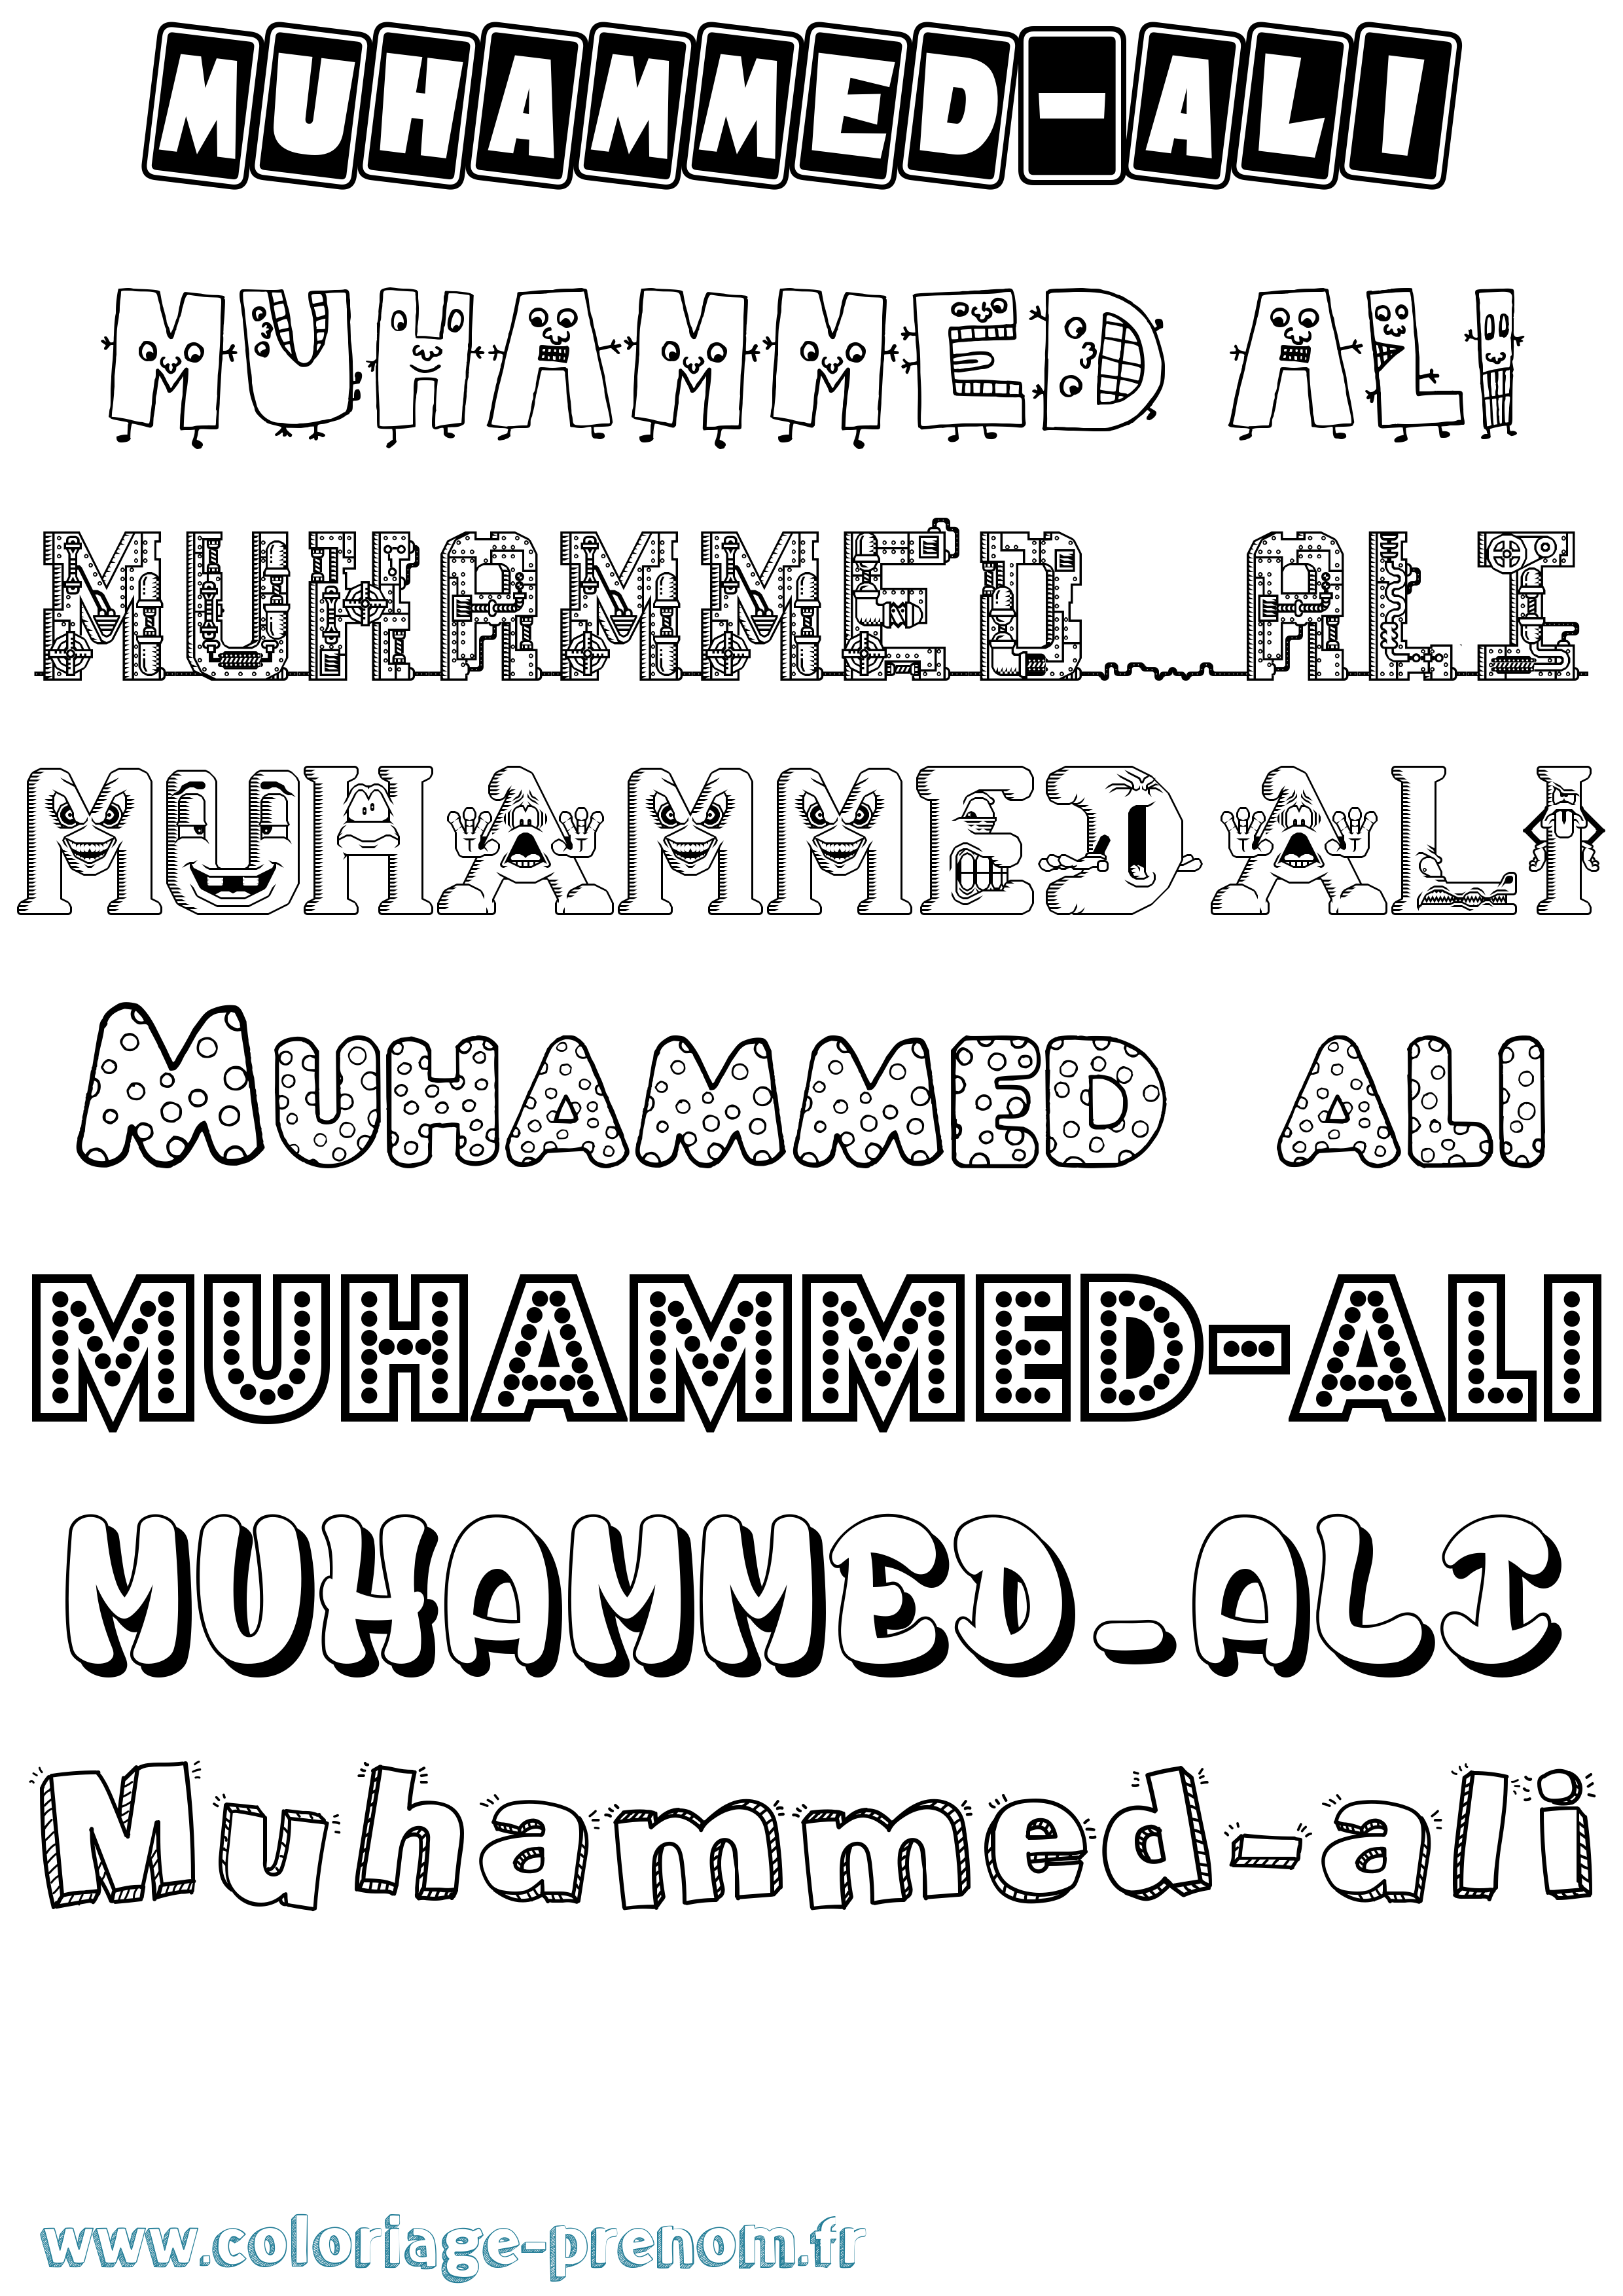 MUHAMMED-ALI
MUHAMMED ALI
MUHAMMED ALI
MUHAMMED ALI
MUHAMMED ALI
MUHAMMED-ALI
MUHAMMED-ALI
Muhammed-ali
www.coloriage-prenom.fr